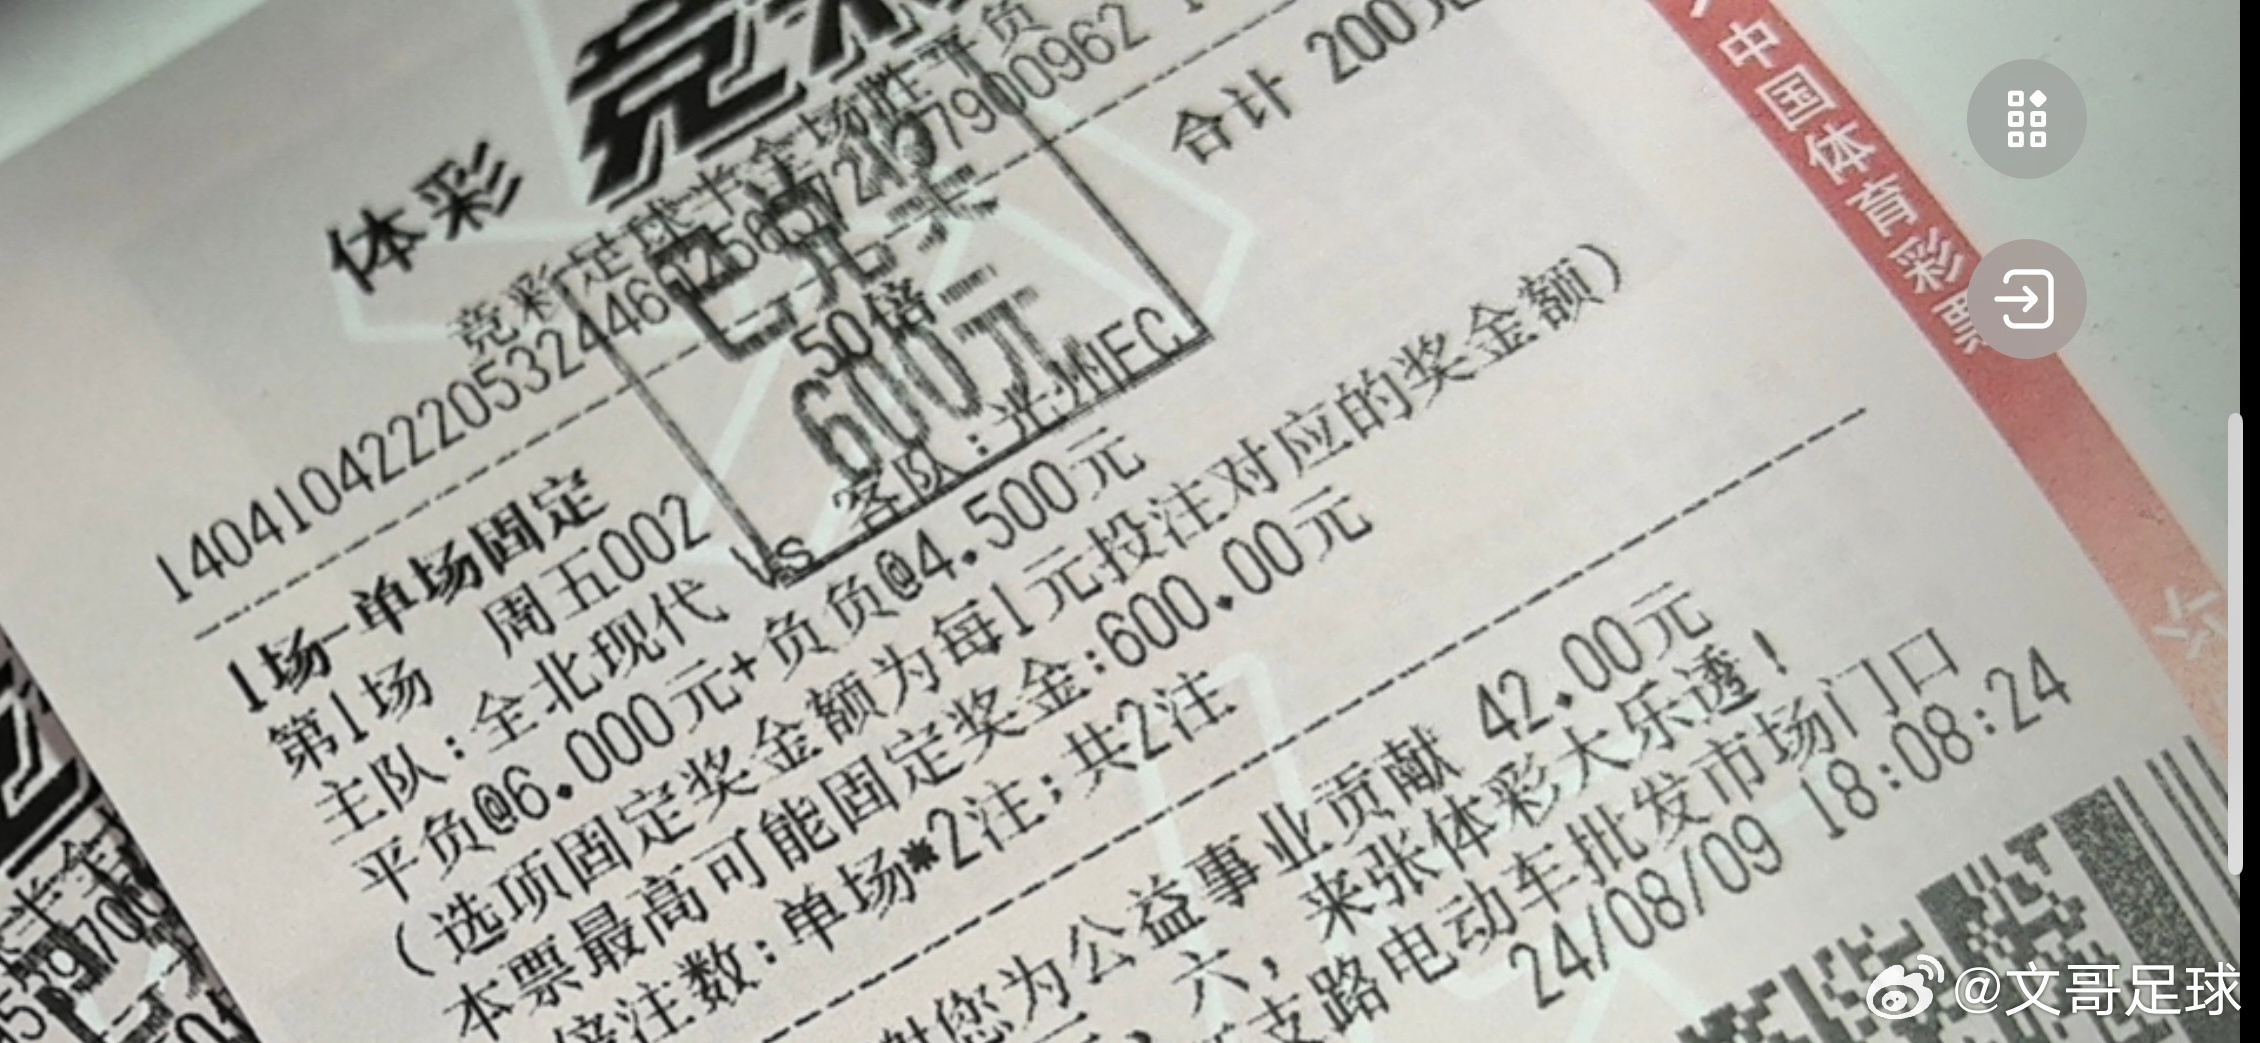 体彩 竞彩
竞彩足球半全场胜平负
合计 200元
1场-单场固定
50倍
第1场 周五002
主队:全北现代 VS 客队:光州FC
平负@6.000元+负负@4.500元
(选项固定奖金额为每1元投注对应的奖金额)
本票最高可能固定奖金:600.00元
倍注数:单场*2注;共2注
已兑奖
600元
谢您为公益事业贡献 42.00元
六,来张体彩大乐透!
支路电动车批发市场门口
24/08/09 18:08:24
中国体育彩票
@文哥足球